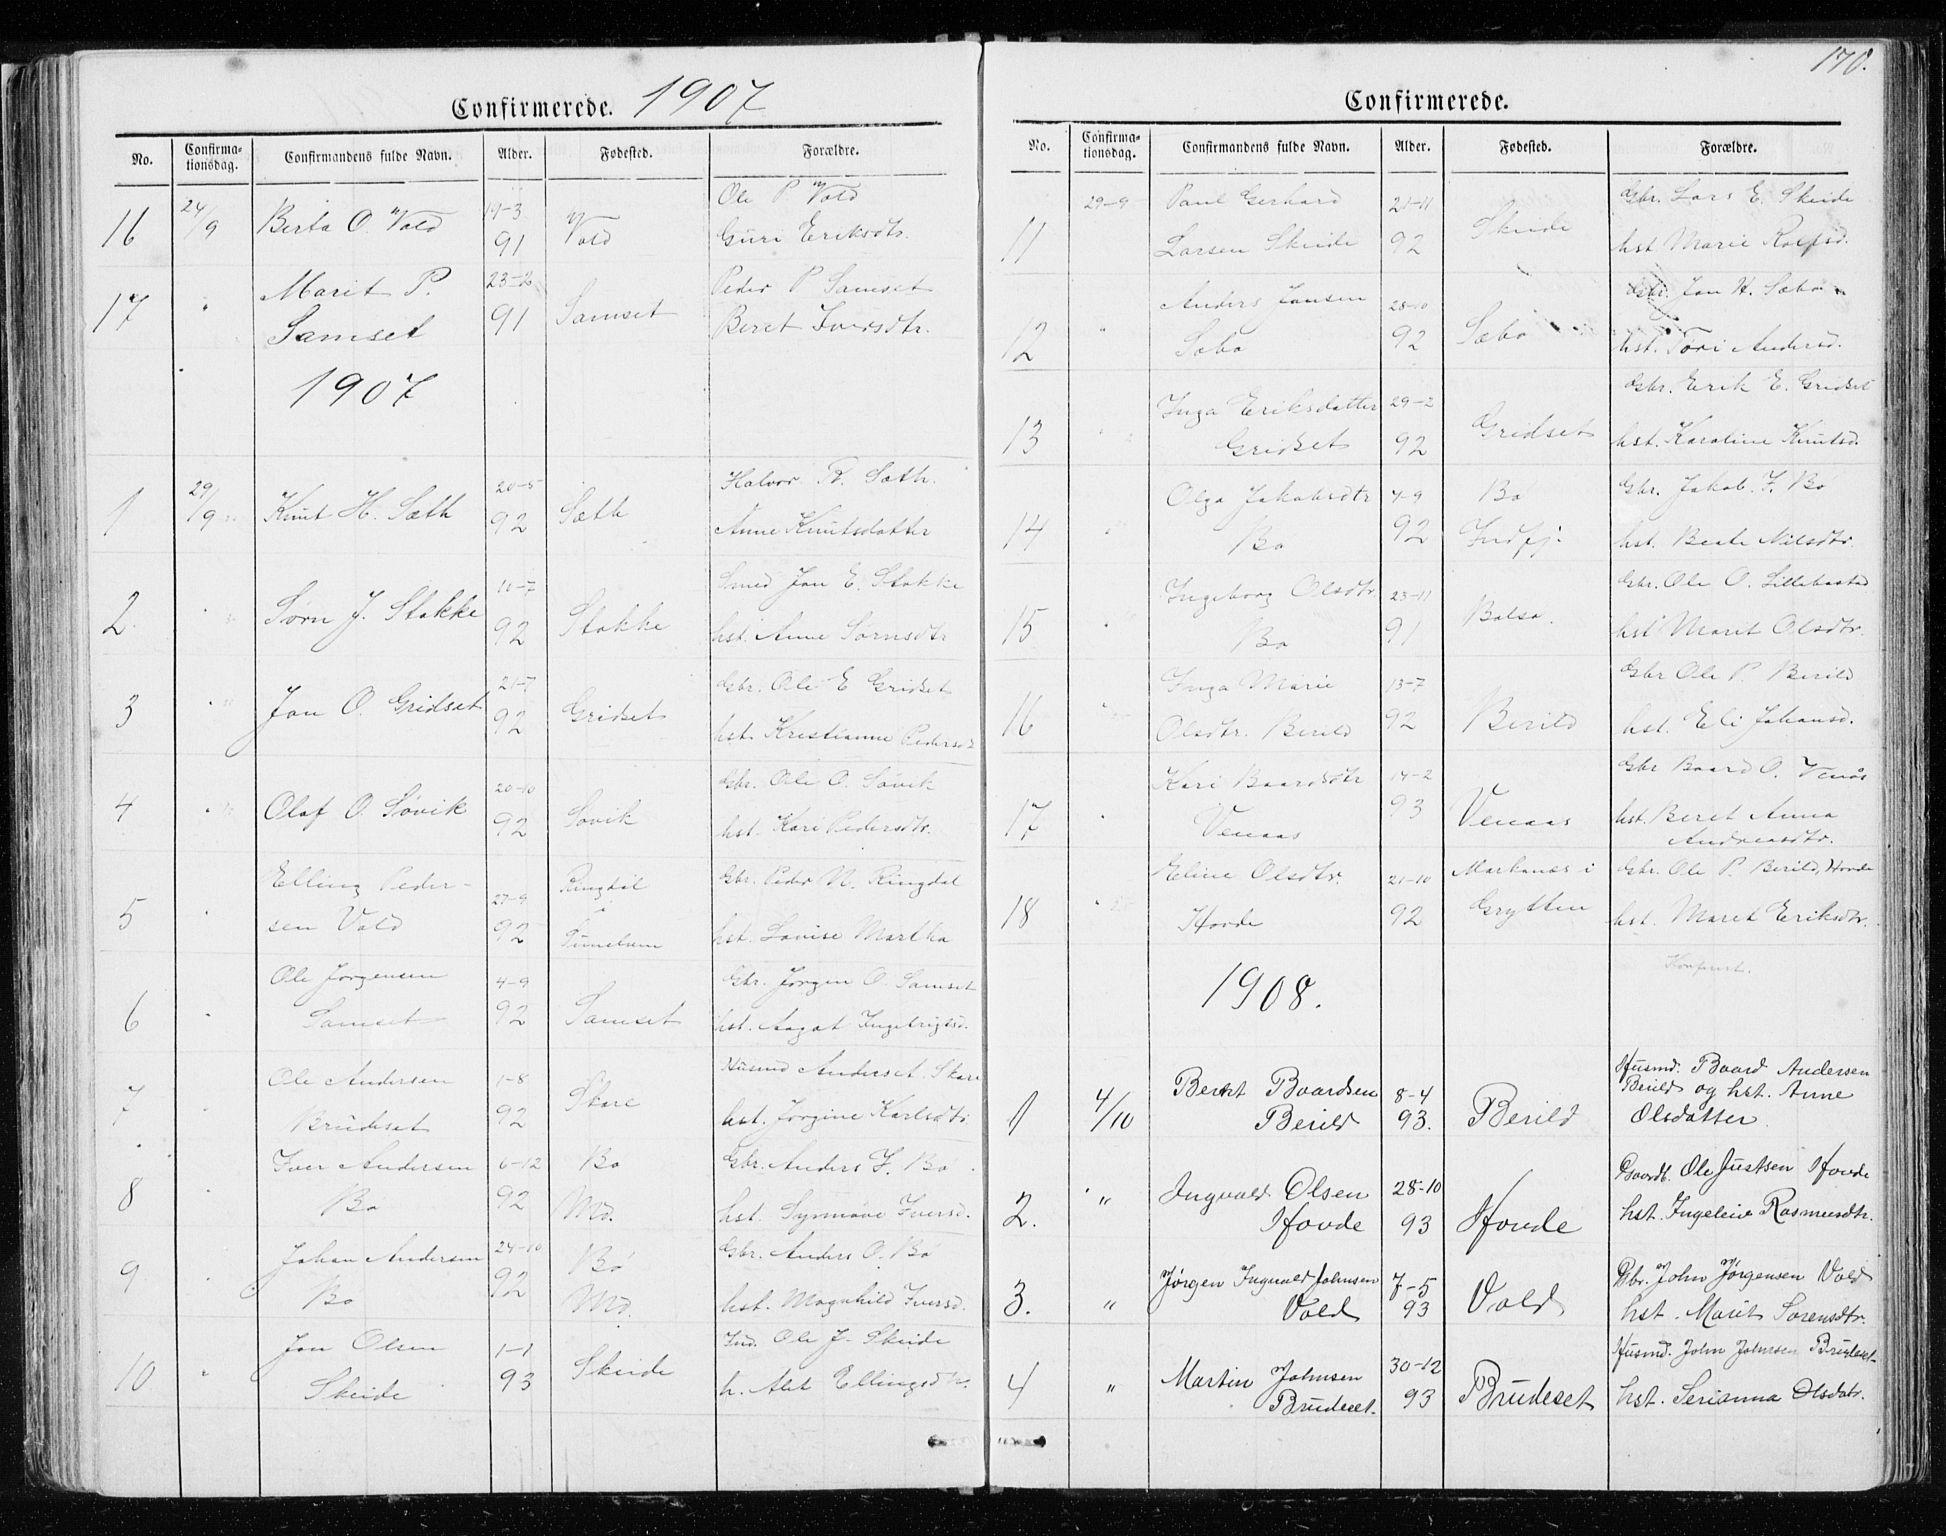 170.
Confirmerede. 1907
No. Confirmationsdag. Confirmandens fulde Navn. Alder. Fødested. Forældre.
16 24/9 Berta O. Vold 19-3 91 Vold Ole P Vold
Guri Eriksdtr.
17 " Marit P. Samset 23-2 91 Samset Peder P Samset
Beret Iversdtr.
1907
1 29/9 Knut H. Sæth 20-5 92 Sæth Halvor R. Sæth.
Anne Knutsdatter
2. " Sørn J. Stokke 10-7 92 Stokke Smed Jon E. Stokke
hst. Anne Sørnsdtr
3 " Jon O. Gridset 21-7 92 Gridset Gbr. Ole E Gridset
hst. Kristianne Pedersd
4 " Olaf O. Søvik 20-10 92 Søvik Gbr. Ole O. Søvik
hst. Kari Pedersdtr.
5 " Elling Pedersen Vold 27-9 92 Ringdal Gbr. Peder N. Ringdal
hst. Lovise Martha
6 " Ole Jørgensen Samset 4-9 92 Samset Gbr. Jørgen O. Samset
hst. Aagot Ingebrigtsd.
7 " Ole Andersen Brudeset 1-8 92 Skare Husmd Anders Skare
hst. Jørgine Karlsdtr.
8 " Iver Andersen Bø 6-12 92 Bø Md. Gbr. Anders I. Bø
hst. Synnøve Iversd.
9 " Johan Andersen Bø 24-10 92 Bø Md. Gbr. Anders O. Bø
hst. Magnhild Iversd.
10 " Jon Olsen Skeide 1-1 93 Skeide Ind. Ole J. Skeide
h. Alet Ellingsdtr.
Confirmerede.
No. Confirmationsdag. Confirmandens fulde Navn. Alder. Fødested. Forældre.
11 29-9 Paul Gerhard Larsen Skeide 21-11 92 Skeide Gbr. Lars E. Skeide
hst Marie Rolfsd.
12 " Anders Jonsen Sæbø 28-10 92 Sæbø Gbr. Jon H. Sæbø
hst. Tøri Andersd.
13 " Inga Eriksdatter Gridset 29-2 92 Gridset Gbr. Erik E. Gridset
hst. Karoline Knutsd.
14 " Olga Jakobsdtr Bø 4-9 92 Bø Indfj. Gbr. Jakob. J. Bø
hst. Beate Nilsdtr.
15 " Ingeborg Olsdtr. Bø 23-11 91 Bolsø. Gbr. Ole O. Lillebostad
hst Marit Olsdtr.
16 " Inga Marie Olsdtr. Berild 13-7 92 Berild Gbr Ole P. Berild
hst. Eli Johansd.
17 " Kari Baardsdtr Venaas 14-2 93 Venaas Gbr Baard O. Venås
hst. Beret Anna Andreasdtr.
18 " Eline Olsdtr. Hovde 21-10 92 Markanæs i Grytten Gbr. Ole P. Berild, Hovde
hst. Maret Eriksdtr.
1908.
1 4/10 Bernt Baardsen Berild 8-4 93. Berild Husmd. Baard Andersen
Berild og hst. Anne
Olsdatter
2. " Ingvald Olsen Hovde 28-10 93 Hovde Gaardb. Ole Justsen Hovde
hst. Ingeleiv Rasmusdtr.
3. " Jørgen Ingvald Johnsen Vold 7-5 93 Vold Gbr. John Jørgensen Vold
hst. Marit Sørensdtr.
4 " Martin Johnsen Brudeset. 30-12 93 Brudeset Husmd. John Johnsen Brudeset
hst. Serianna Olsdatr.